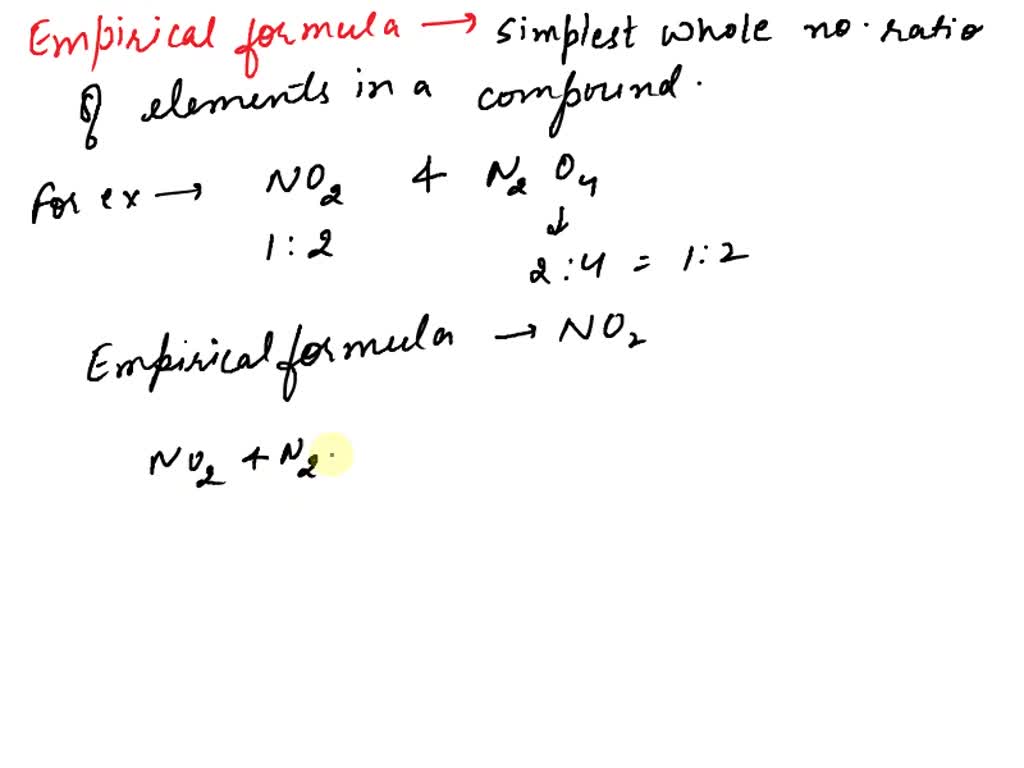 Empirical formula → simplest whole no. ratio
of elements in a compound.
for ex → NO₂ & N₂O₄
↓
1:2 2:4 = 1:2
Empirical formula → NO₂
NO₂ & N₂